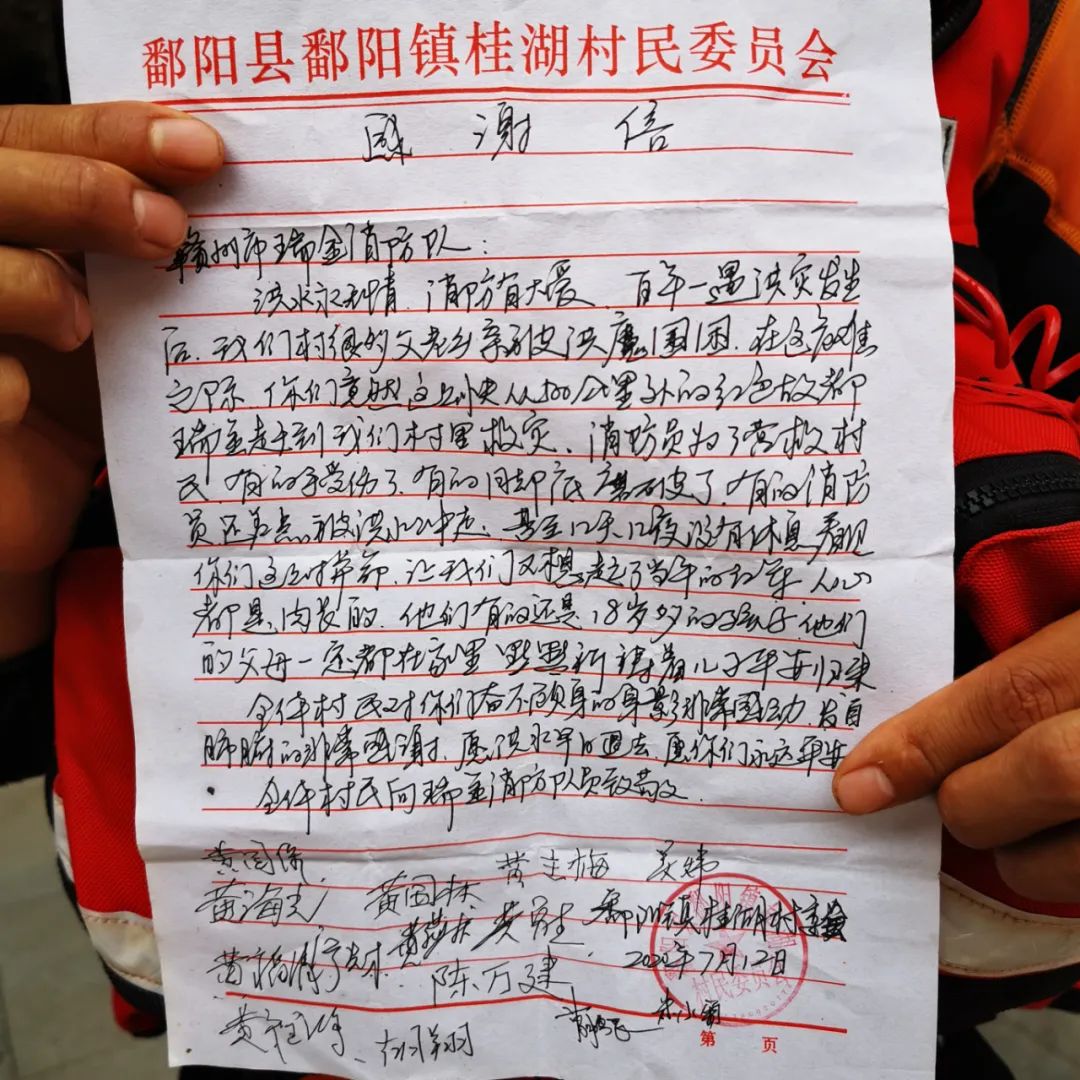 鄱阳县鄱阳镇桂湖村民委员会
感谢信
赣州市瑞金消防队：
洪水永无情，消防有大爱，百年一遇洪灾发生
后，我们村很多父老乡亲被洪魔围困，在这危难
之际，你们竟然这么快从500公里外的红色故都
瑞金赶到我们村里救灾，消防员为了营救村
民，有的手受伤了，有的因脚底磨破了，有的消防
员还差点被洪水冲走，甚至几天几夜没有休息，看见
你们这么时革命，让我们又想起了当年的红军，人心
都是肉长的，他们有的还是18岁多的孩子，他们
的父母一定都在家里默默祈祷着儿子平安归来
全体村民对你们奋不顾身的身影非常感动，发自
肺腑的非常感谢，愿洪水早日退去，愿你们永远平安
全体村民向瑞金消防队员致敬
黄国保 黄志梅 吴炜
黄海 黄国林
鄱阳镇桂湖村委会
陈万建 2020年7月12日
胡翔
村民委员会
第 页